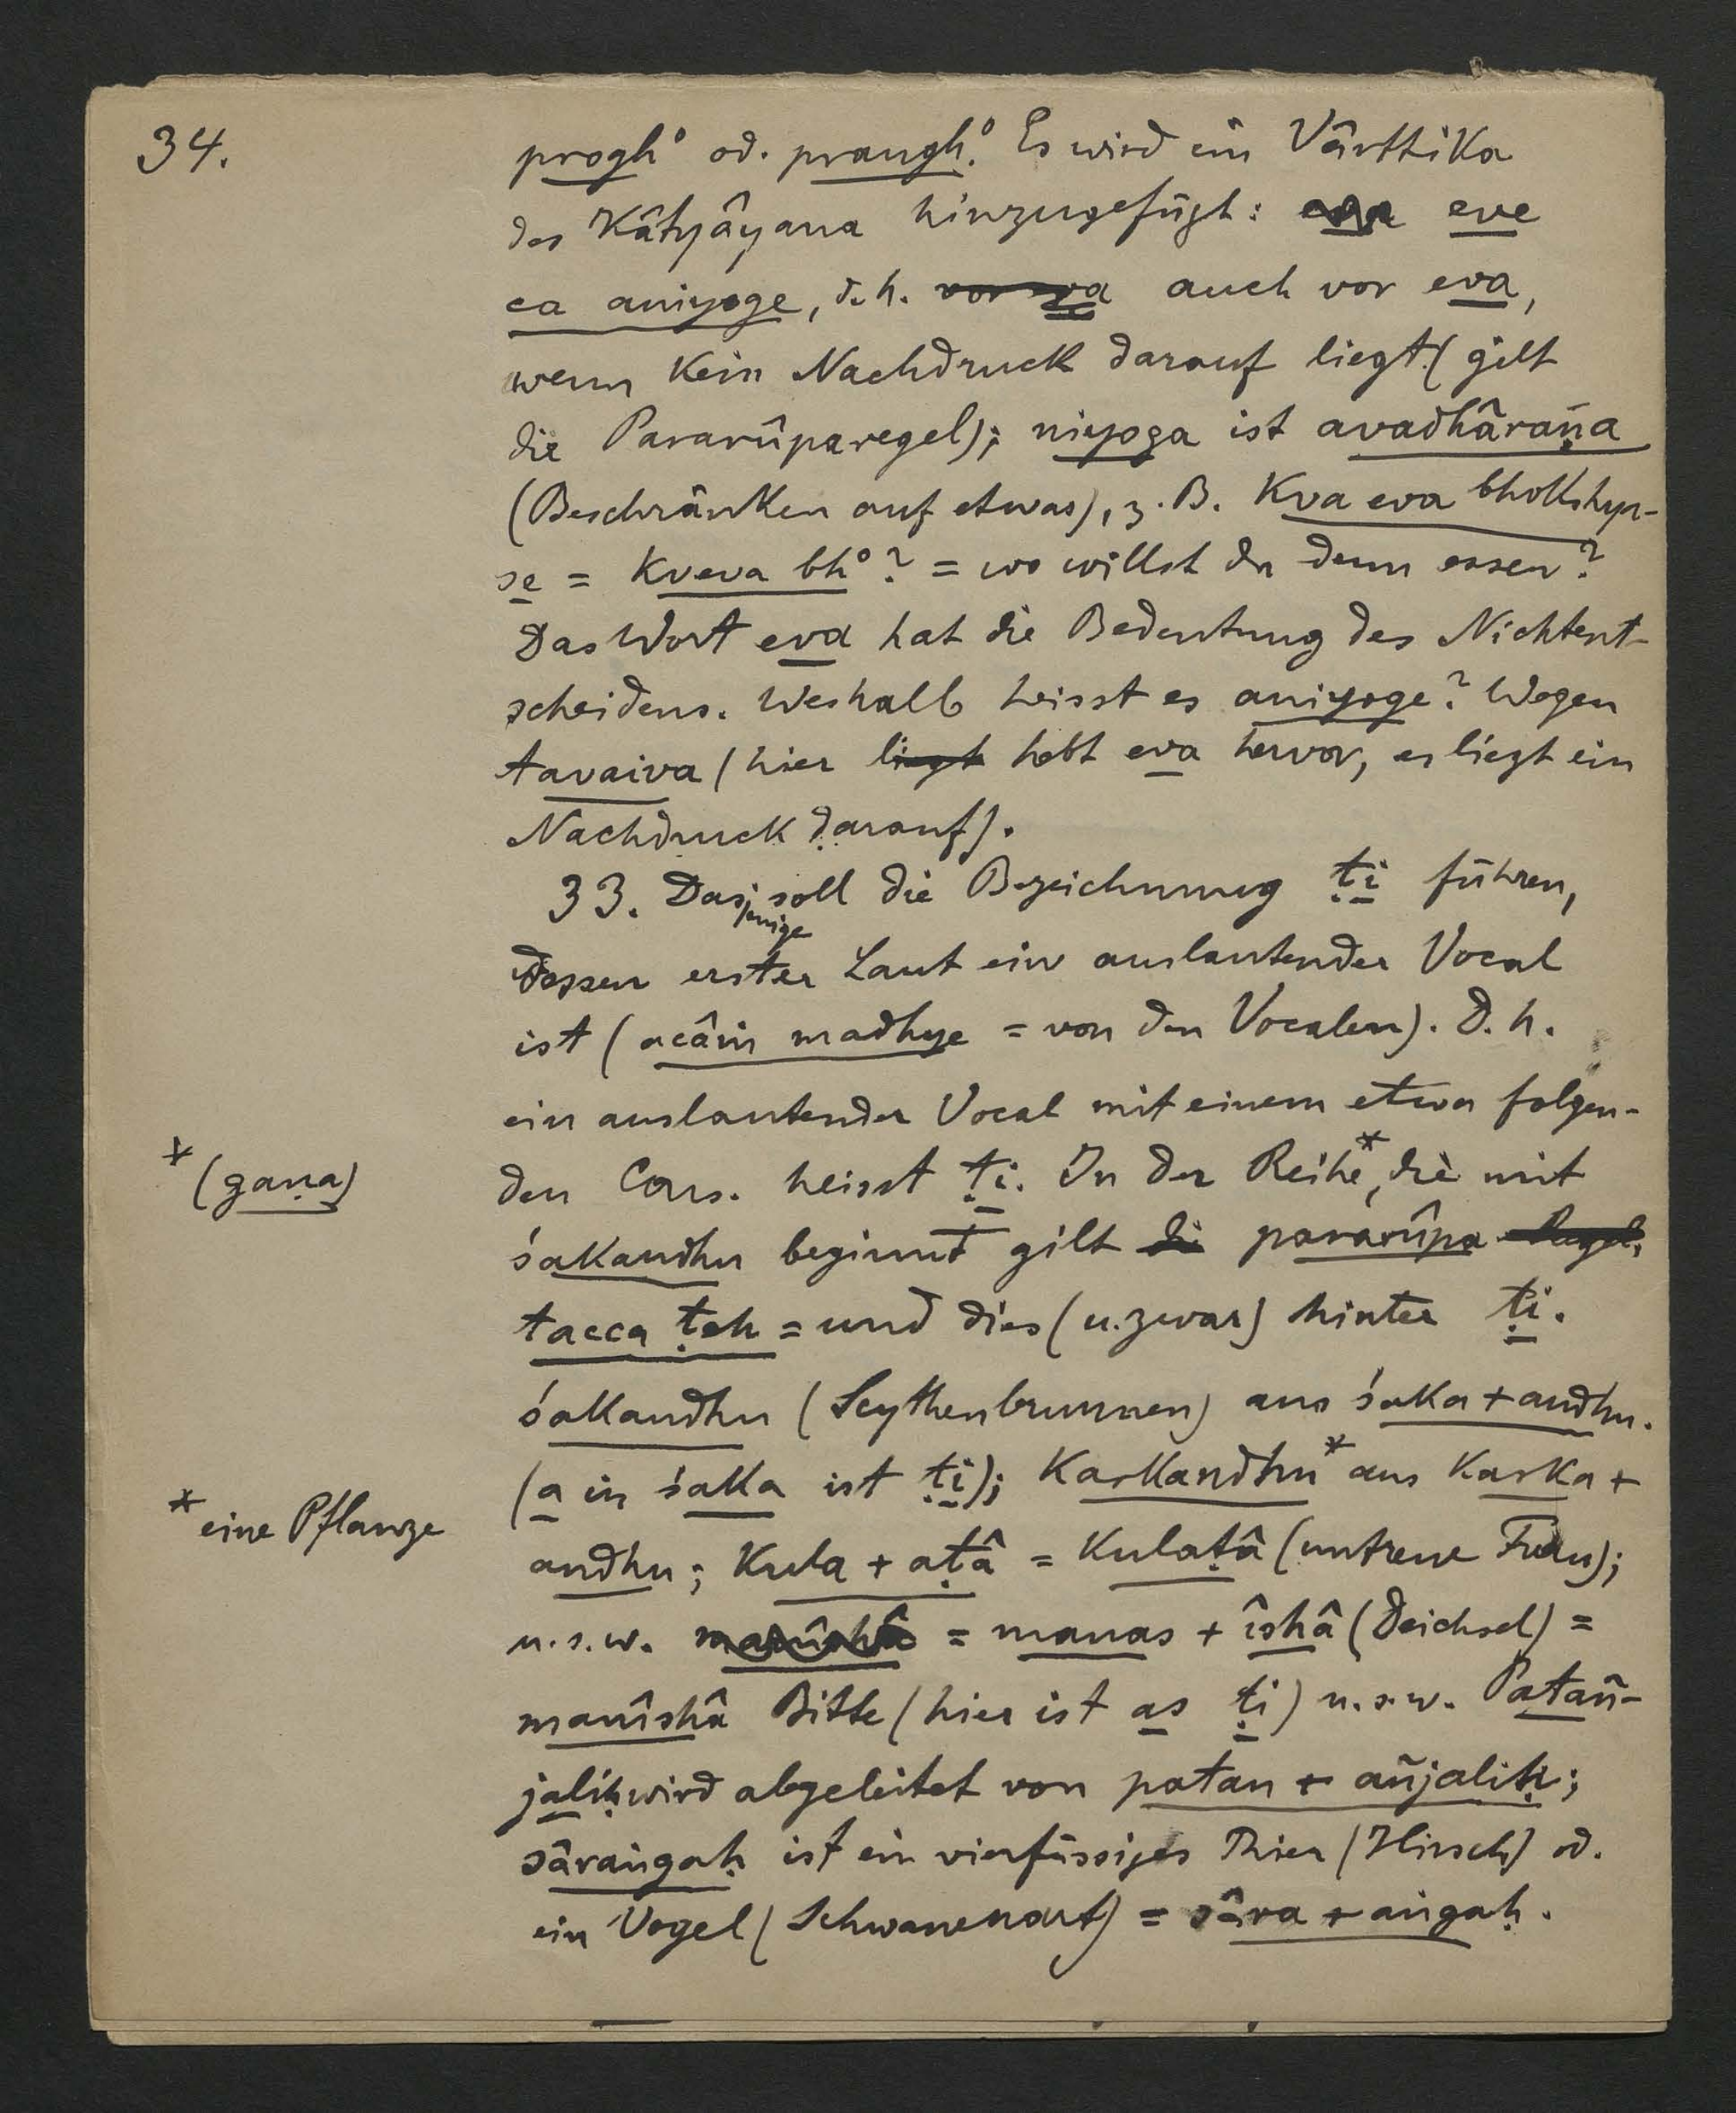 34.
progh° od. praugh.° Es wird ein Vârttika
des Kâtyâyana hinzugefügt: eva eve
ca aniyoge, d.h. vor eva auch vor eva,
wenn kein Nachdruck darauf liegt (gilt
die Pararûparegel); niyoga ist avadhâraṇa
(Beschränken auf etwas), z.B. Kva eva bhokshya-
se = Kveva bh°? = wo willst du denn essen?
Das Wort eva hat die Bedeutung des Nichtent-
scheidens. Weshalb heisst es aniyoge? Wegen
tavaiva (hier liegt hebt eva hervor, es liegt ein
Nachdruck darauf).
33. Dasjenige soll die Bezeichnung ṭi führen,
dessen erster Laut ein auslautender Vocal
ist (acâṁ madhye = von den Vocalen). D.h.
ein auslautender Vocal mit einem etwa folgen-
* (gaṇa)
den Cons. heisst ṭi. In der Reihe*, die mit
śakandhu beginnt gilt die pararûpa Regel,
tacca ṭeh = und dies (u. zwar) hinter ṭi.
śakandhu (Scythenbrunnen) aus śaka + andhu.
(a in śaka ist ṭi); Karkandhu* aus Karka +
* eine Pflanze
andhu; Kula + aṭâ = Kulaṭâ (untreue Frau);
u.s.w. manîshâ = manas + îshâ (Deichsel) =
manîshâ Bitte (hier ist as ṭi) u.s.w. Patañ-
jaliḥ wird abgeleitet von patan + añjaliḥ;
sâraṅgaḥ ist ein vierfüssiges Thier (Hirsch) od.
ein Vogel (Schwanenart) = sâra + aṅgaḥ.